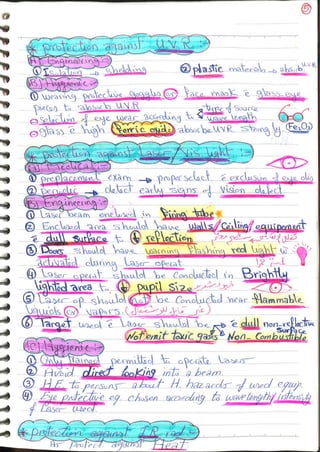 5
* protection against U.V.R :-
(A) Engineering :-
① Isolation → shelding ② plastic materials → absorb U.V.R
(B) Hygienic :-
① wearing protective goggles or Face mask ē glass eye
piece to absorb U.V.R
② selection of eye wear according to → type of source → wave length
③ glass ē high Ferric oxide absorbe UVR strongly (Fe2O3)
* protection against Laser / Vis light :-
(A) Medical :-
① preplacement exam → proper select. ē exclusion of eye dis
② periodic → detect early signs of Vision defect
(B) Engineering :-
① Laser beam enclosed in Firing tube
② Enclosed area should have walls / Ceiling / equipement
ē dull surface to ↓ reflection
③ Doors should have warning flashing red light
activated during Laser operat.
④ Laser operat. should be Conducted in Brightly
lighted area to ↓ pupil size
⑤ Laser op. should not be Conducted near flammable
liquids or vapors
⑥ Target used ē Laser should be → ē dull non-reflective surface
Not emit toxic gases & Non-Combustible
(C) Hygienic :-
① Only trained permitted to operate Laser
② Avoid direct looking into a beam
③ H.E to persons about H. hazards of used equip.
④ Eye protective eq. chosen according to wavelength / intensity
of Laser used
* protection against IR rad.
As protect against Heat